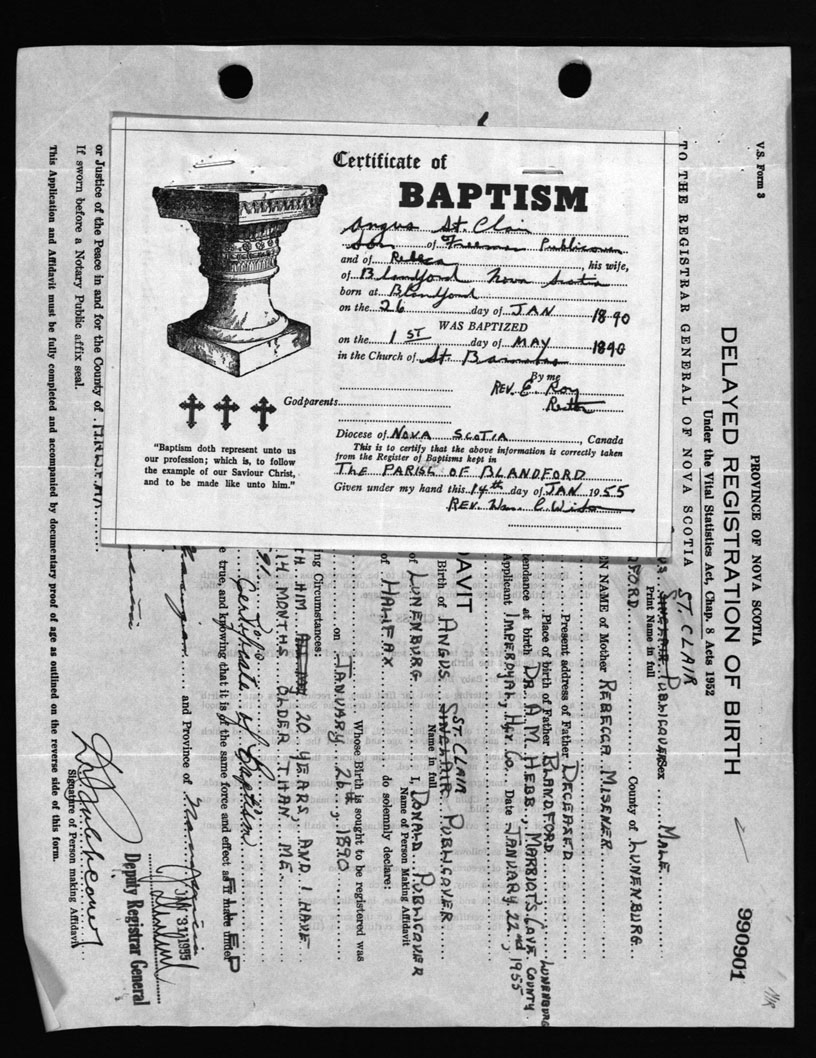 Certificate of
BAPTISM
Angus St. Clair
Son of Freeman Publicover
and of Rebeca, his wife,
of Blandford Nova Scotia
born at Blandford
on the 26 day of JAN 1890
WAS BAPTIZED
on the 1ST day of MAY 1890
in the Church of St Barnabas
By me
REV. E Roy
Rector
Godparents
Diocese of NOVA SCOTIA, Canada
This is to certify that the above information is correctly taken
from the Register of Baptisms kept in
THE PARISH OF BLANDFORD
Given under my hand this 14th day of JAN 1955
REV. Wm. C.
"Baptism doth represent unto us
our profession; which is, to follow
the example of our Saviour Christ,
and to be made like unto him."
V.S. Form 3
PROVINCE OF NOVA SCOTIA
DELAYED REGISTRATION OF BIRTH
990901
Under the Vital Statistics Act, Chap. 8 Acts 1952
TO THE REGISTRAR GENERAL OF NOVA SCOTIA
ST. CLAIR
US SINCLAIR PUBLICOVER Sex MALE
Print Name in full
FORD County of LUNENBURG
EN NAME of Mother REBECCA MISENER
Present address of Father DECEASED
Place of birth of Father BLANDFORD, LUNENBURG
tendance at birth DR. A. M. HEBB, MARRIOTS COVE, COUNTY
Applicant IMPEROYAL, HFX CO. Date JANUARY 22nd 1955
DAVIT
ST. CLAIR
Birth of ANGUS SINCLAIR PUBLICOVER
Name in full
of LUNENBURG I, DONALD PUBLICOVER
Name of Person Making Affidavit
of HALIFAX do solemnly declare:
Whose Birth is sought to be registered was
on JANUARY 26th, 1890
ing Circumstances:
TH HIM 20 YEARS, AND I HAVE
14 MONTHS OLDER THAN ME.
91
Certificate of Baptism
e true, and knowing that it is of the same force and effect as if made under
and Province of Nova Scotia
JAN 31 1955
Deputy Registrar General
D. Publicover
Signature of Person making Affidavit
or Justice of the Peace in and for the County of
If sworn before a Notary Public affix seal.
This Application and Affidavit must be fully completed and accompanied by documentary proof of age as outlined on the reverse side of this form.